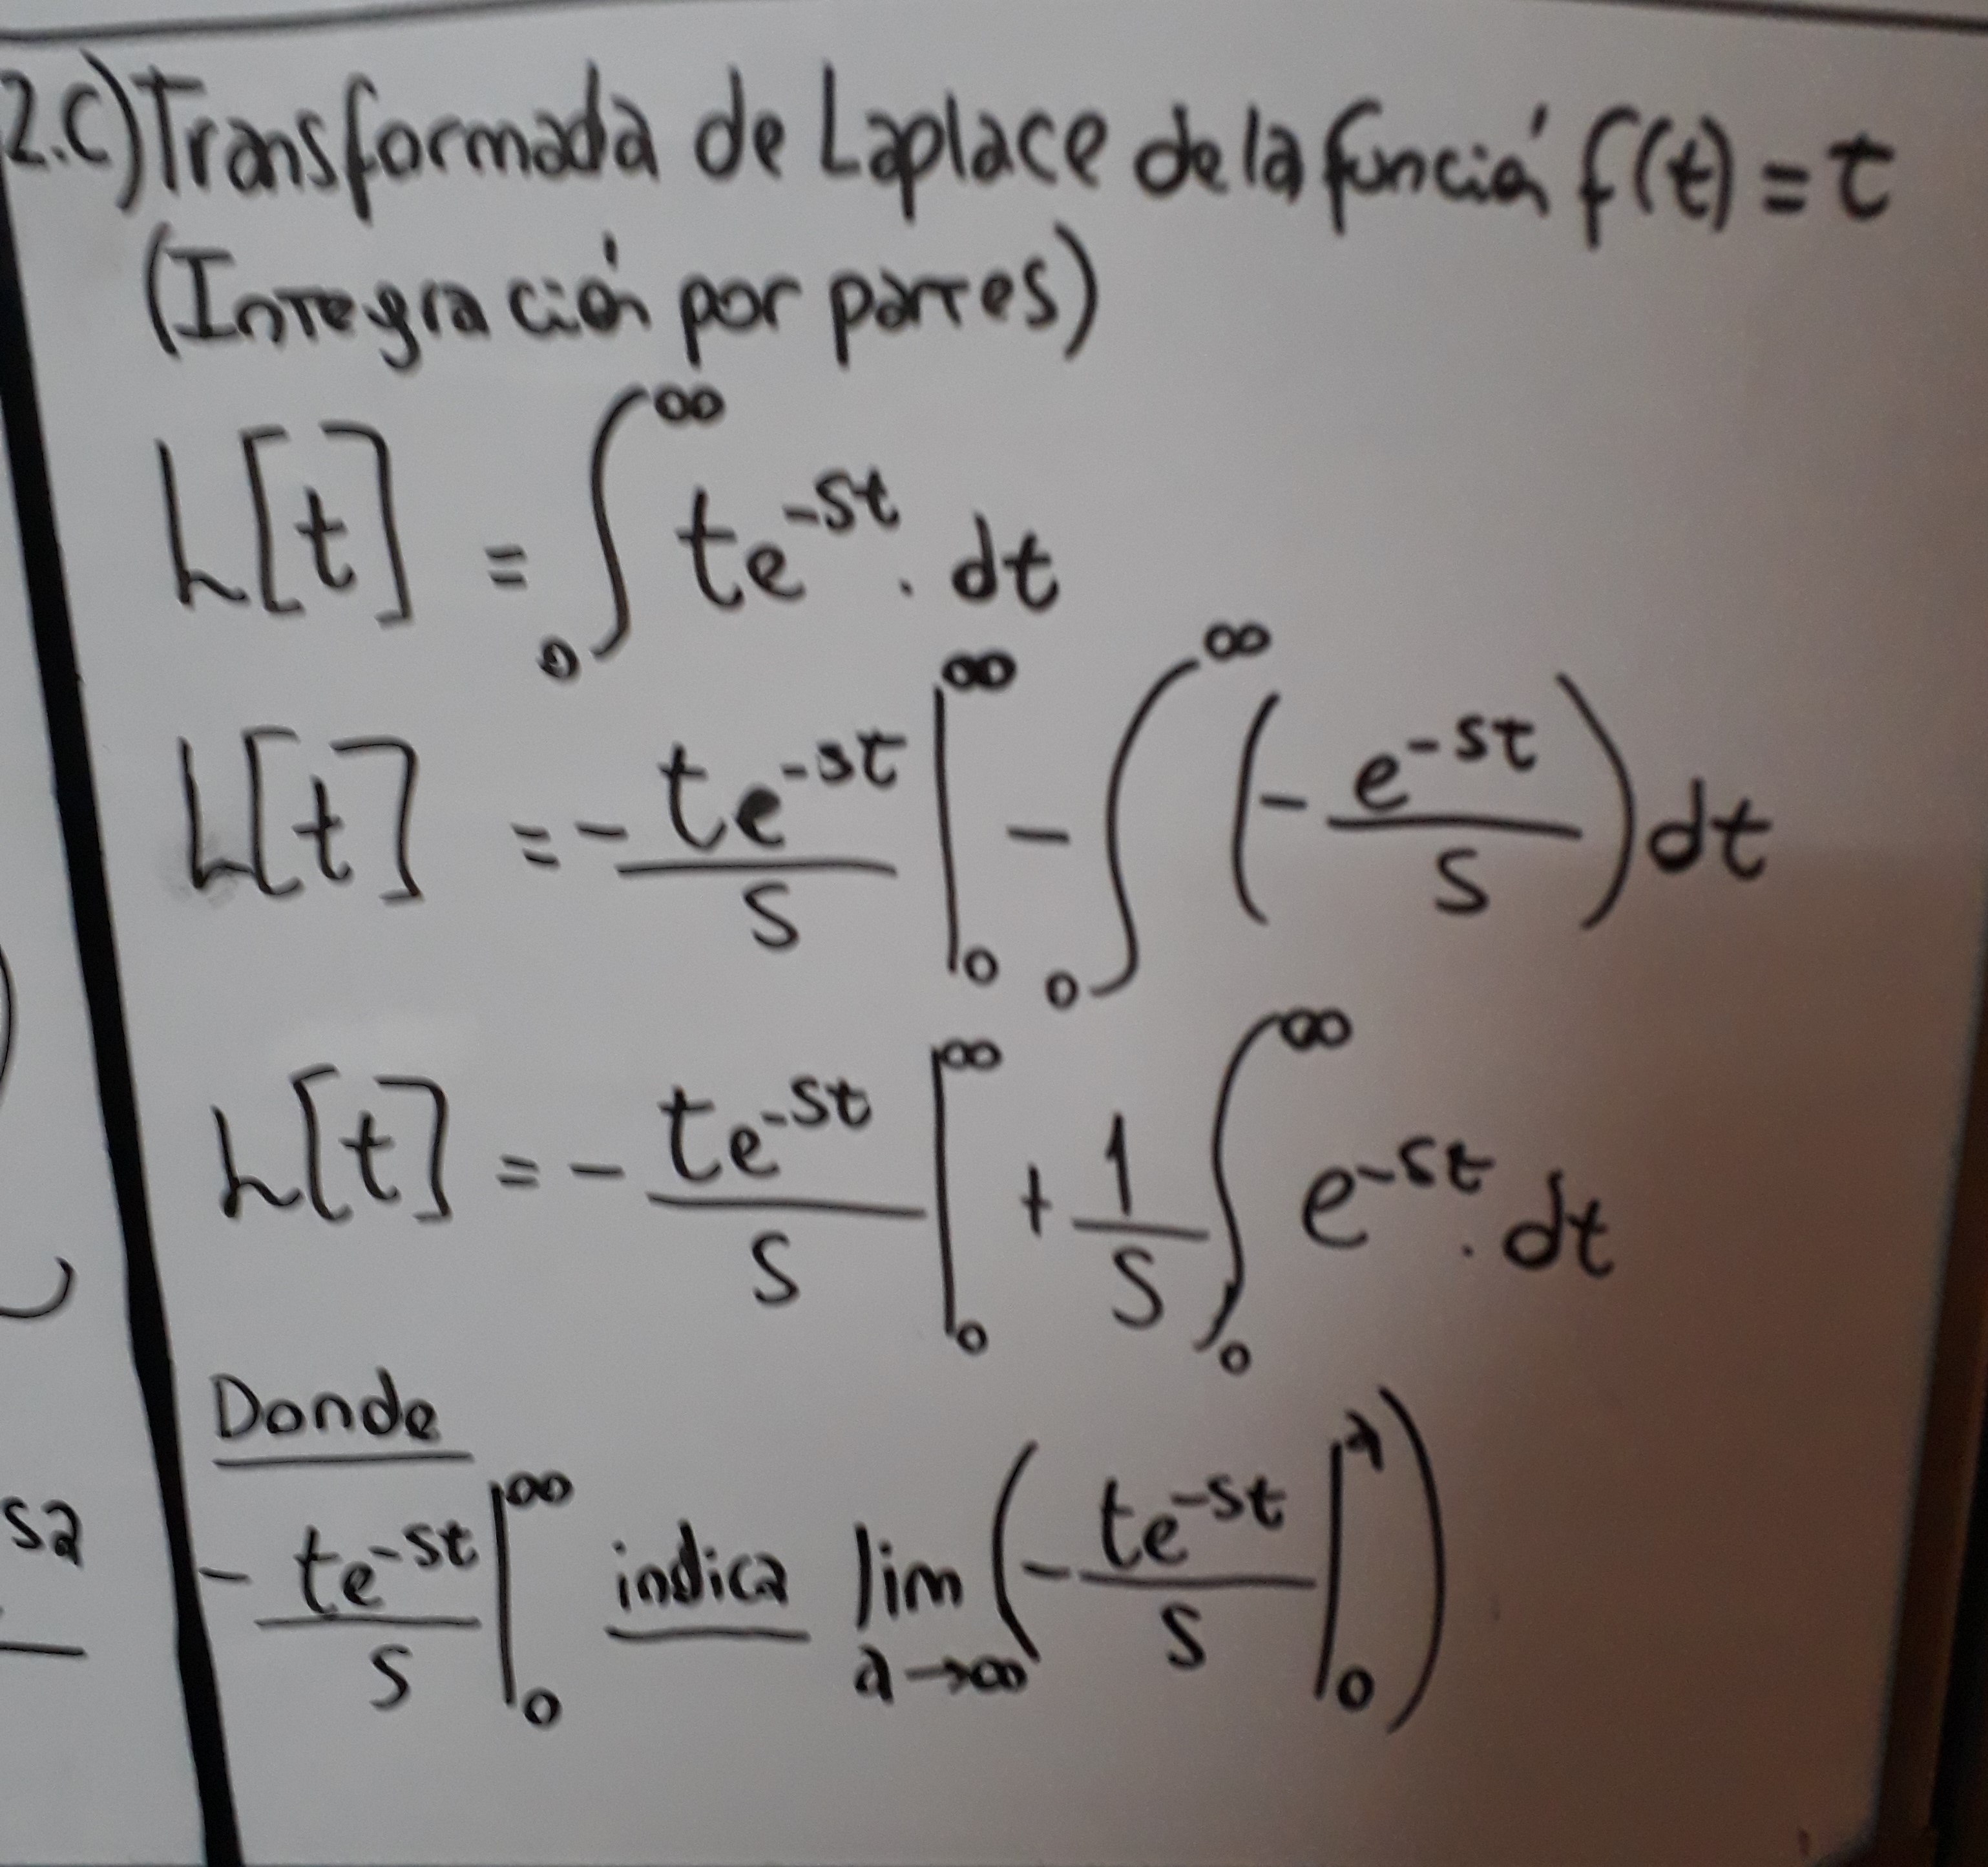 2.C) Transformada de Laplace de la función f(t) = t
(Integración por partes)
L[t] = ∫₀^∞ te^-st . dt
L[t] = - te^-st/s |₀^∞ - ∫₀^∞ (- e^-st/s) dt
L[t] = - te^-st/s |₀^∞ + 1/s ∫₀^∞ e^-st . dt
Donde
- te^-st/s |₀^∞ indica lim a→∞ (- te^-st/s |₀^a)
sa